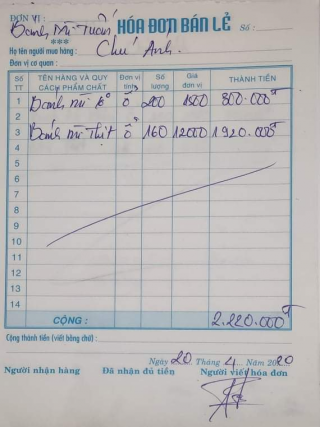 ĐƠN VỊ: Bánh Mì Tuấn HÓA ĐƠN BÁN LẺ Số:
***
Họ tên người mua hàng: Chú Anh.
Đơn vị cơ quan:
Số TT TÊN HÀNG VÀ QUY CÁCH PHẨM CHẤT Đơn vị tính Số lượng Giá đơn vị THÀNH TIỀN
1 Bánh mì ổ 200 800.000đ
2
3 Bánh mì thịt ổ 160 12000 1.920.000đ
4
5
6
7
8
9
10
11
12
13
14
CỘNG: 2.220.000đ
Cộng thành tiền (viết bằng chữ):
Ngày 20 Tháng 4 Năm 2020
Người nhận hàng Đã nhận đủ tiền Người viết hóa đơn